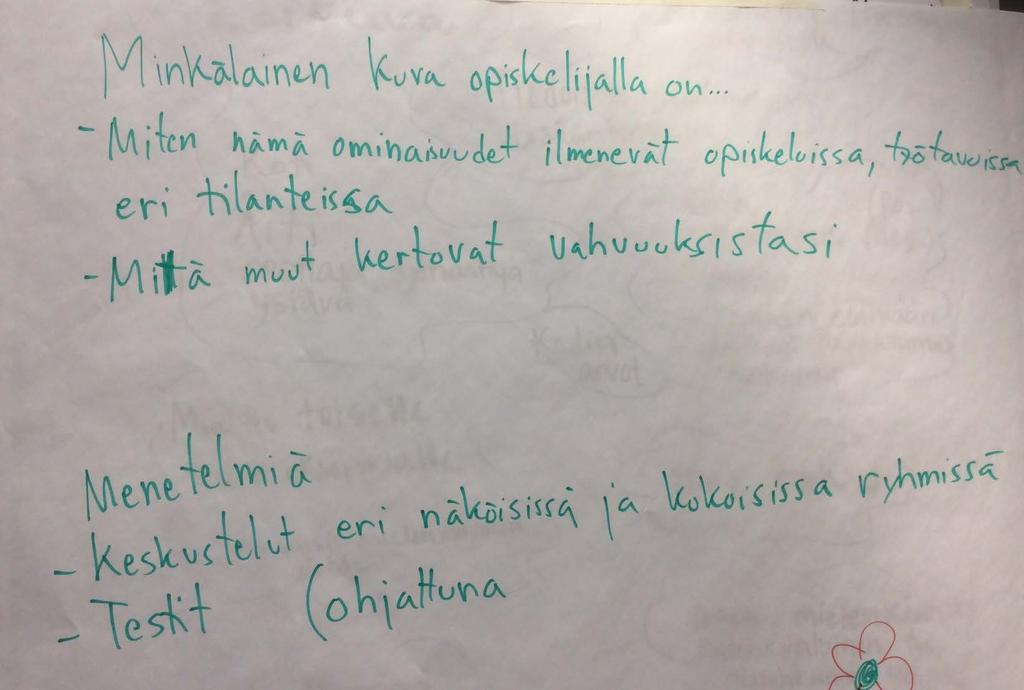 Minkälainen kuva opiskelijalla on...
- Miten nämä ominaisuudet ilmenevät opiskeluissa, työtavoissa
eri tilanteissa
- Mitä muut kertovat vahvuuksistasi
Menetelmiä
- Keskustelut eri näköisissä ja kokoisissa ryhmissä
- Testit (ohjattuna